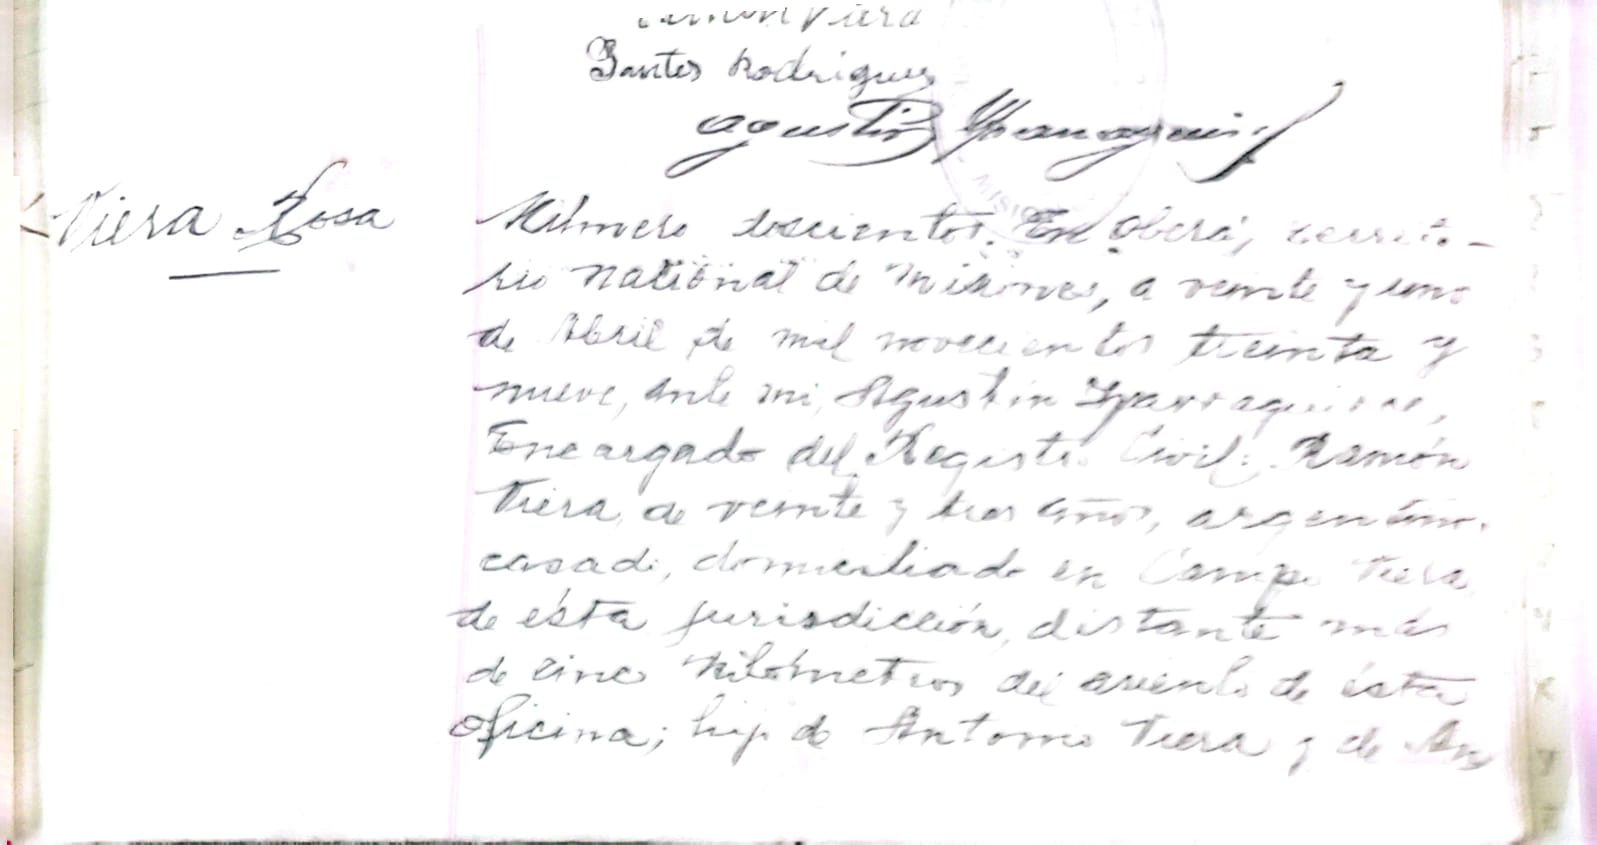 Ramón Viera
Santos Rodriguez
Agustin Yparraguirre
Viera Rosa
Número doscientos. En Oberá, territo-
rio national de Misiones, a veinte y uno
de Abril de mil novecientos treinta y
nueve, ante mi, Agustin Yparraguirre,
Encargado del Registro Civil: Ramón
Viera, de veinte y tres años, argentino,
casado, domiciliado en Campo Viera
de ésta jurisdicción, distante más
de cinco kilómetros del asiento de ésta
oficina; hijo de Antonio Viera y de